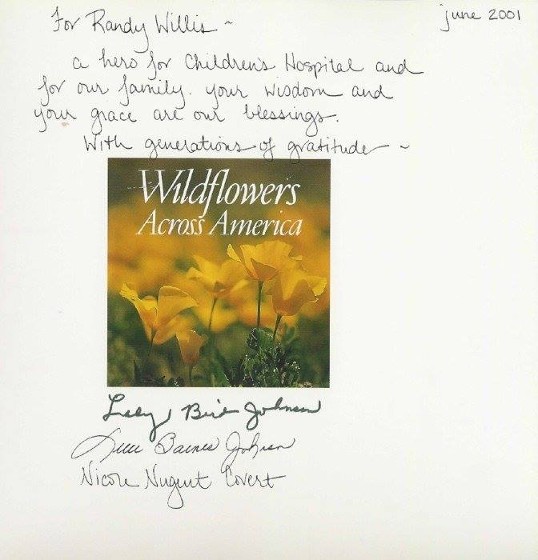 For Randy Willis ~
June 2001
a hero for Children's Hospital and
for our family. your wisdom and
your grace are our blessings.
With generations of gratitude ~
Wildflowers
Across America
Lady Bird Johnson
Luci Baines Johnson
Nicole Nugent Covert